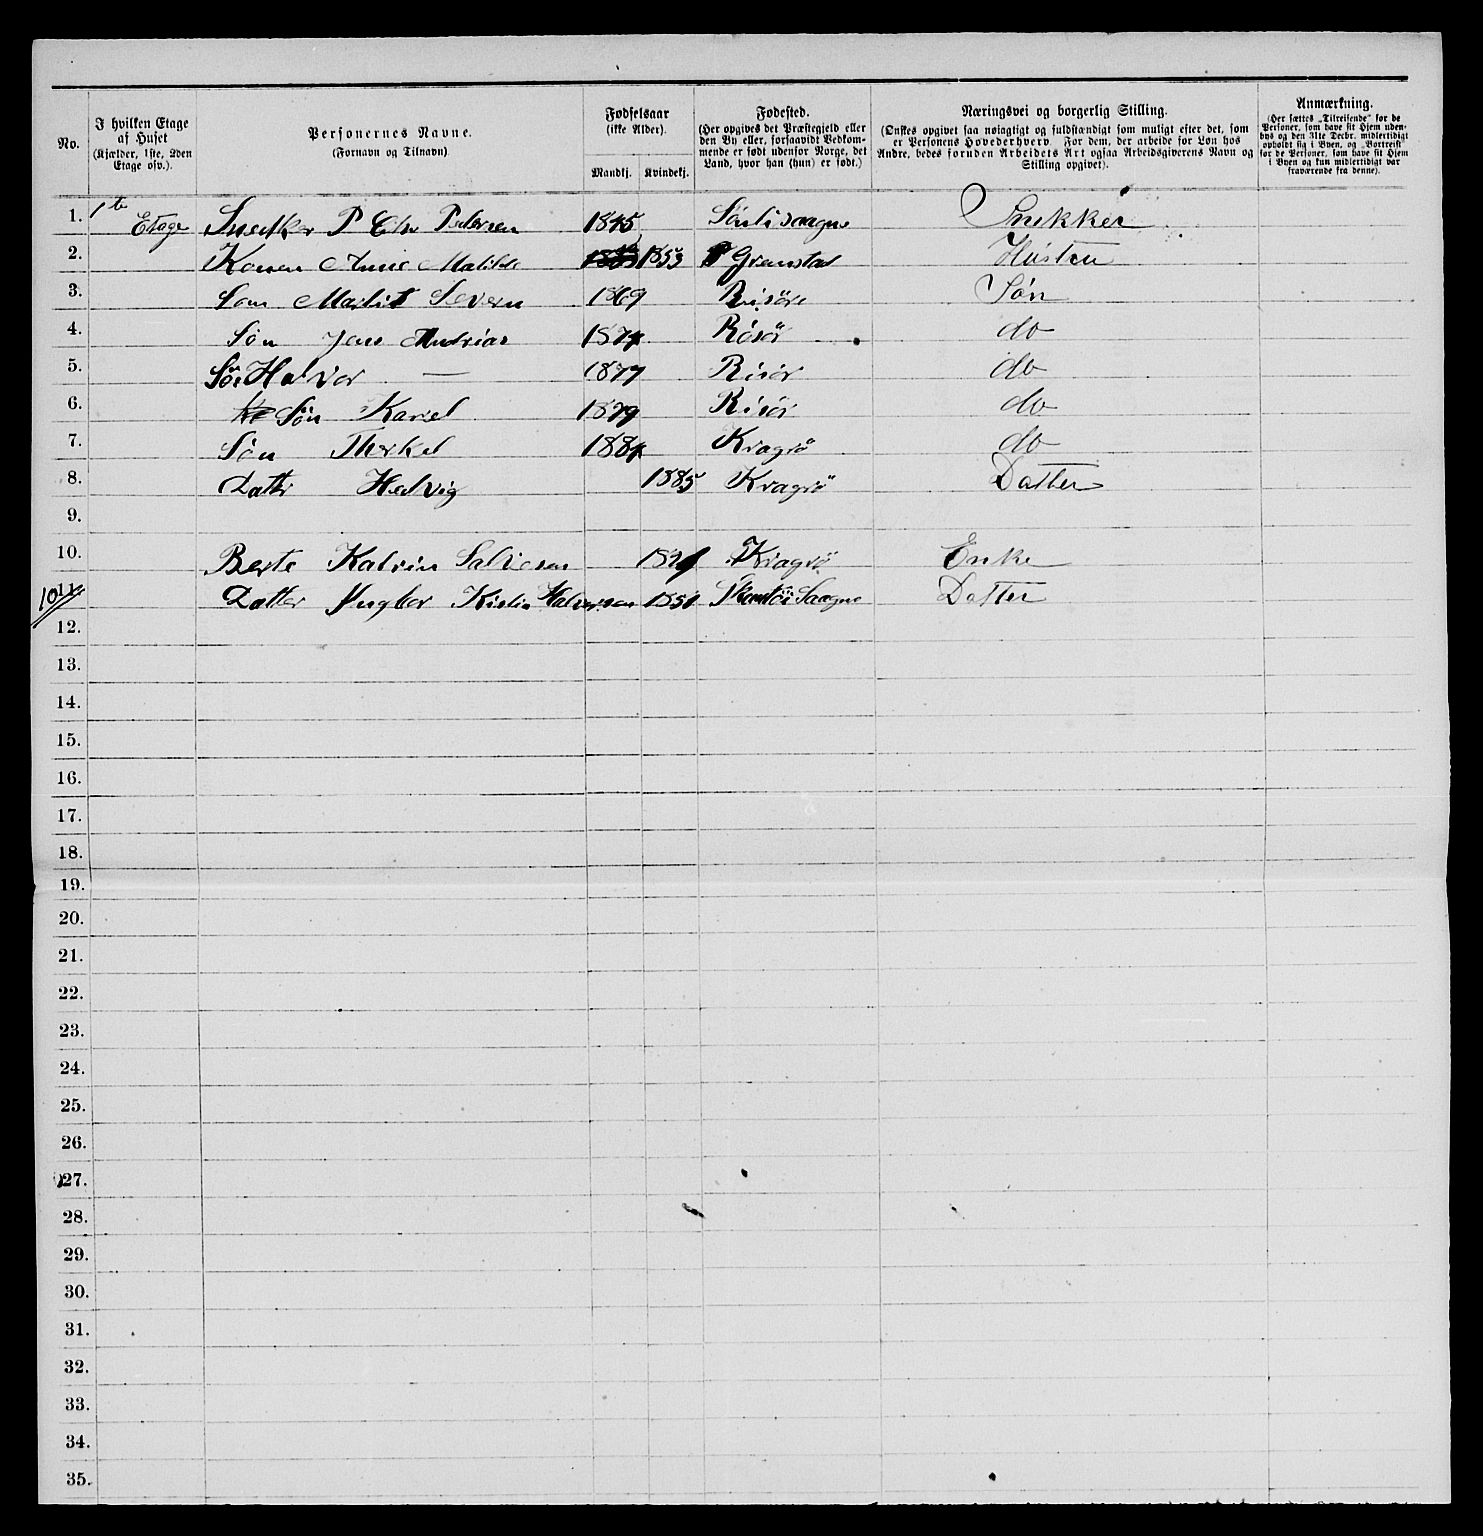 No.
I hvilken Etage
af Huset
(Kjælder, 1ste, 2den
Etage osv.).
Personernes Navne.
(Fornavn og Tilnavn)
Fødselsaar
(ikke Alder).
Mandkj. Kvindekj.
Fødested.
(Her opgives det Præstegjeld eller
den By eller, forsaavidt Vedkom-
mende er født udenfor Norge, det
Land, hvor han (hun) er født.)
Næringsvei og borgerlig Stilling.
(Ønskes opgivet saa nøiagtigt og fuldstændigt som muligt efter det, som
er Personens Hovederhverv. For dem, der arbeide for Løn hos
Andre, bedes foruden Arbeidets Art ogsaa Arbeidsgiverens Navn og
Stilling opgivet).
Anmærkning.
(Her sættes „Tilreisende“ for de
Personer, som have sit Hjem uden-
bys og den 31te Decbr. midlertidigt
opholdt sig i Byen, og „Bortreist“
for de Personer, som have sit Hjem
i Byen og kun midlertidigt var
fraværende fra denne).
1. 1te Etage Snedker P Chr Pedersen 1845 Snekker
2. Konen Anne Matilde 1853 Grimstad Hustru
3. Søn Severn 1869 Risöer Sön
4. Sön Jens Andrias 1874 Risör do
5. Sön Halvor — 1877 Risör do
6. Sön Karel 1879 Risör do
7. Sön Therkel 1884 Kragrö do
8. Datter Hedvig 1885 Kragrö Datter
9.
10. Berte Katrin Salvesen Kragrö Enke
11. Datter Ingbor Kistin Halvorsen 1851 Datter
12.
13.
14.
15.
16.
17.
18.
19.
20.
21.
22.
23.
24.
25.
26.
27.
28.
29.
30.
31.
32.
33.
34.
35.